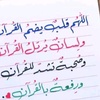 اللهم قلبٌ يضم القرآن
ولسان يُرتل القرآن
وصُحبة تشد للقرآن
ورفعةً بالقرآن